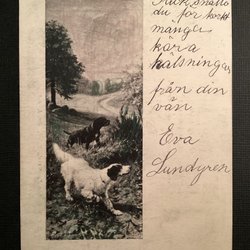 Tack, snälla
du för kortet
många
kära
hälsningar
från din
vän
Eva
Lundgren